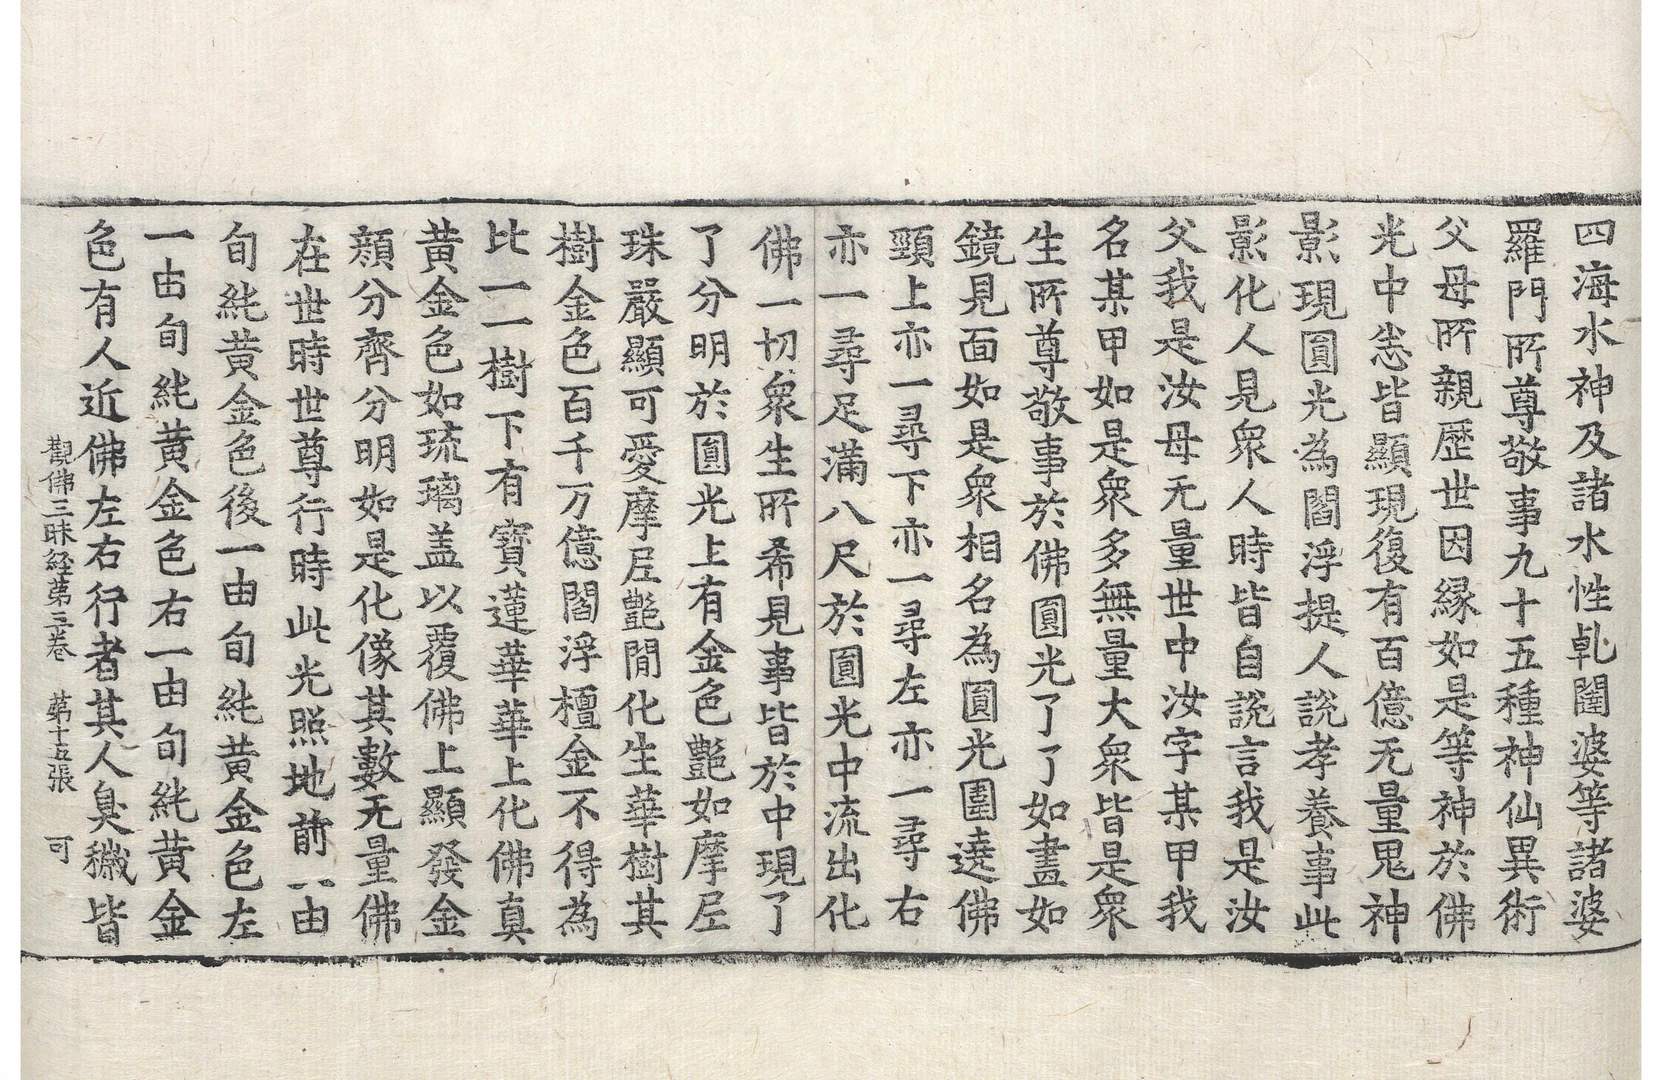 四海水神及諸水性乹闥婆等諸婆
羅門所尊敬事九十五種神仙異術
父母所親歷世因縁如是等神於佛
光中悉皆顯現復有百億无量鬼神
影現圓光為閻浮提人說孝養事此
影化人見衆人時皆自說言我是汝
父我是汝母无量世中汝字某甲我
名某甲如是衆多無量大衆皆是衆
生所尊敬事於佛圓光了了如畫如
鏡見面如是衆相名為圓光圍遶佛
頸上亦一尋下亦一尋左亦一尋右
亦一尋足滿八尺於圓光中流出化
佛一切衆生所希見事皆於中現了
了分明於圓光上有金色豔如摩尼
珠嚴顯可愛摩尼豔間化生華樹其
樹金色百千万億閻浮檀金不得為
比一一樹下有寶蓮華華上化佛真
黃金色如琉璃盖以覆佛上顯發金
顏分齊分明如是化像其數无量佛
在世時世尊行時此光照地前一由
旬純黃金色後一由旬純黃金色左
一由旬純黃金色右一由旬純黃金
色有人近佛左右行者其人臭穢皆
觀佛三昧経第三卷 苐十五張 可